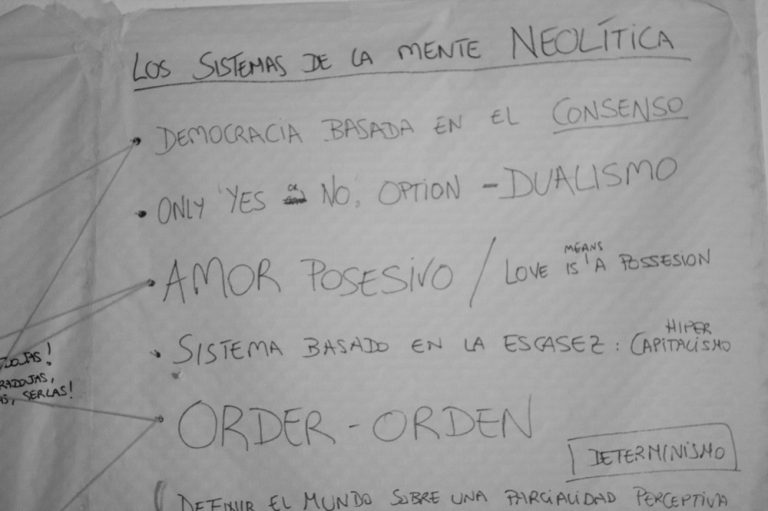 LOS SISTEMAS DE LA MENTE NEOLÍTICA
• DEMOCRACIA BASADA EN EL CONSENSO
• ONLY 'YES OR NO' OPTION - DUALISMO
• AMOR POSESIVO / LOVE IS MEANS A POSSESION
• SISTEMA BASADO EN LA ESCASEZ: HIPER CAPITALISMO
SERLAS!
• ORDER - ORDEN
DETERMINISMO
DEFINIR EL MUNDO SOBRE UNA PARCIALIDAD PERCEPTIVA